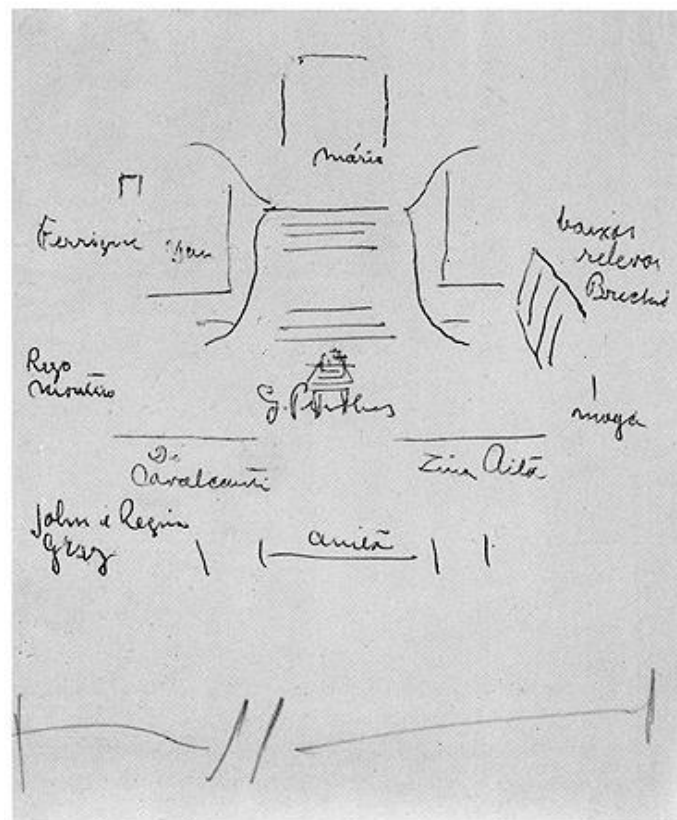 Mário
Ferrignac Yan
baixos
relevos
Brecheret
Rego
Monteiro
G.
moya
Di
Cavalcanti
Zina Aita
John e Regina
Graz
Anita